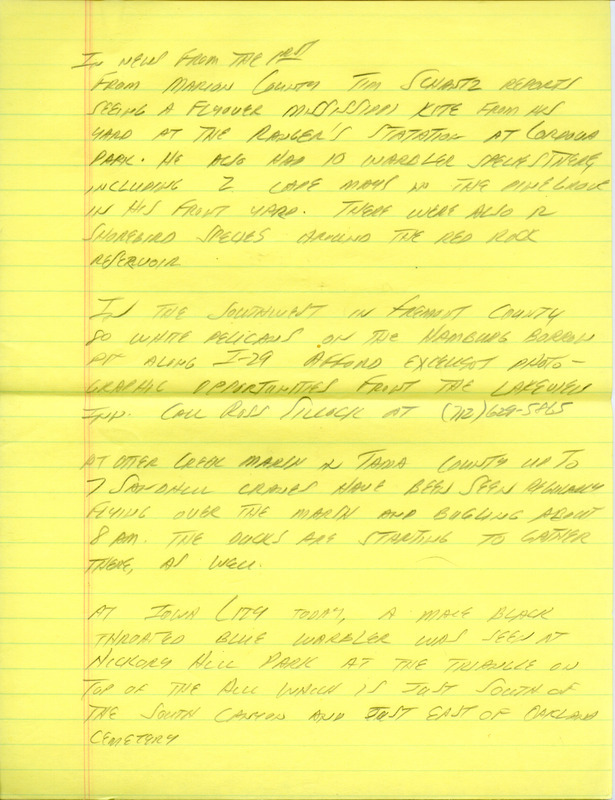 In news from the
From Marion County Tim Schantz reports
seeing a flyover Mississippi Kite from his
yard at the Ranger's Statation at Cordova
Park. He also had 10 warbler species there,
including 2 Cape Mays in the pine grove
in his front yard. There were also 12
shorebird species around the Red Rock
Reservoir

In the southwest in Fremont County
80 white pelicans on the Hamburg borrow
pit along I-29 afford excellent photo-
graphic opportunities from the Lakeview
Inn. Call Ross Silcock at (712)629-5865

At Otter Creek Marsh in Tama County up to
7 sandhill cranes have been seen regularly
flying over the marsh and bugling about
8 am. The ducks are starting to gather
there, as well.

At Iowa City today, a male black
throated blue warbler was seen at
Hickory Hill Park at the triangle on
top of the hill which is just south of
the South Canyon and just east of Oakland
Cemetery